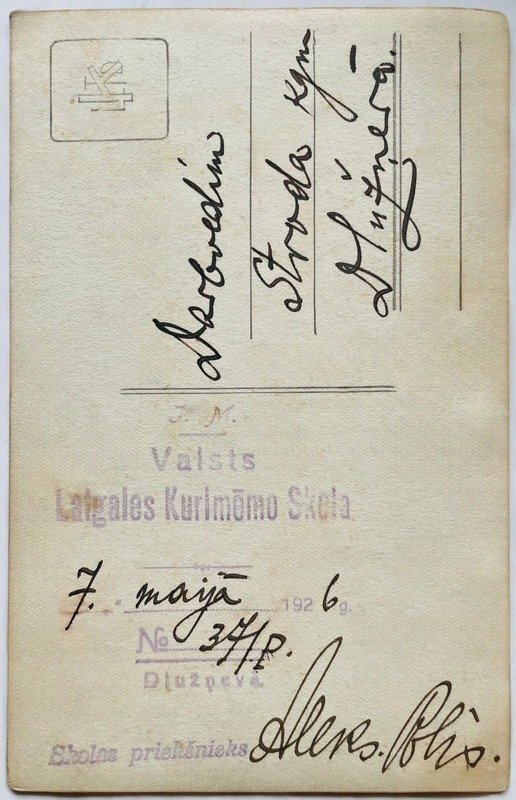 Darbvedim
Stroda kgm
Dļužņevā.
I. M.
Valsts
Latgales Kurlmēmo Skola
7. maijā 1926 g.
№ 37/P.
Dļužņevā
Skolas priekšnieks Aleks. Polis.